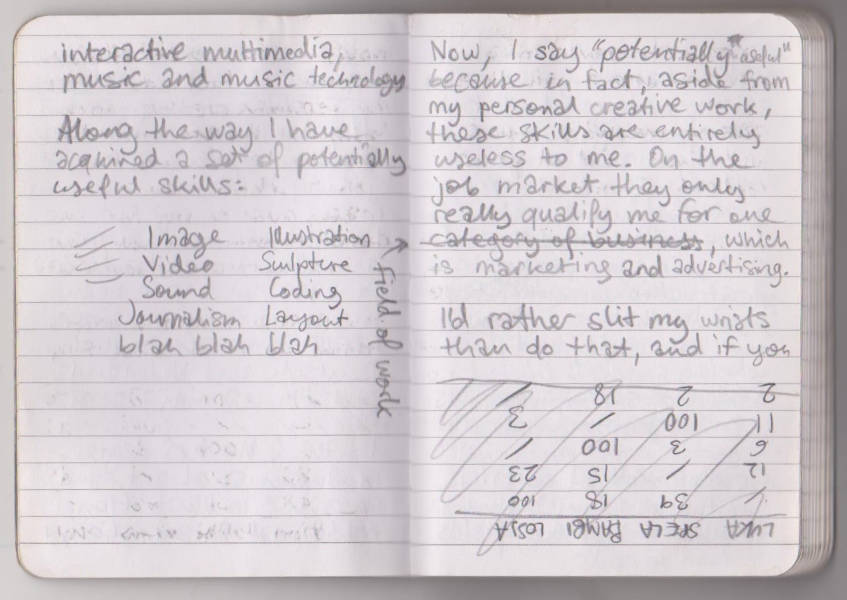 interactive multimedia,
music and music technology
Along the way I have
acquired a set of potentially
useful skills:
Image Illustration
Video Sculpture
Sound Coding
Journalism Layout
blah blah blah
field of work
Now, I say "potentially useful"
because in fact, aside from
my personal creative work,
these skills are entirely
useless to me. On the
job market they only
really qualify me for one
category of business, which
is marketing and advertising.
I'd rather slit my wrists
than do that, and if you
LUKA SPELA BAMBI LOSJA
/ 39 18 100
12 / 15 23
6 3 100 /
11 100 / 3
2 2 18 /